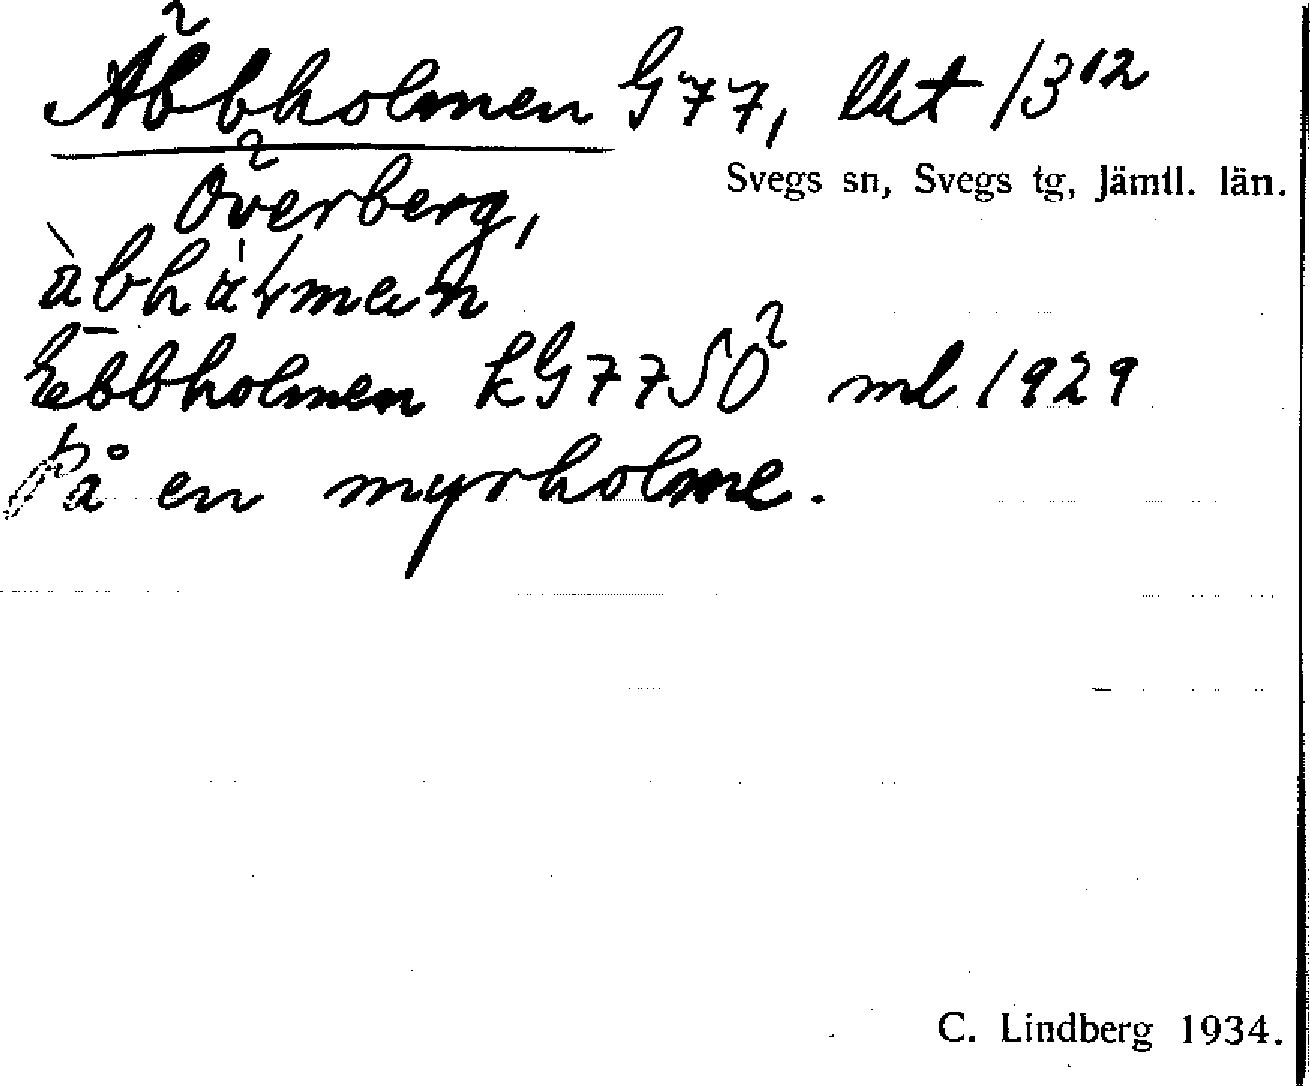 Äbbholmen G77, lkt /3¹²
Svegs sn, Svegs tg, Jämtl. län.
Överberg,
Ebbholmen kG77SÖ ml 1929
På en myrholme.
C. Lindberg 1934.